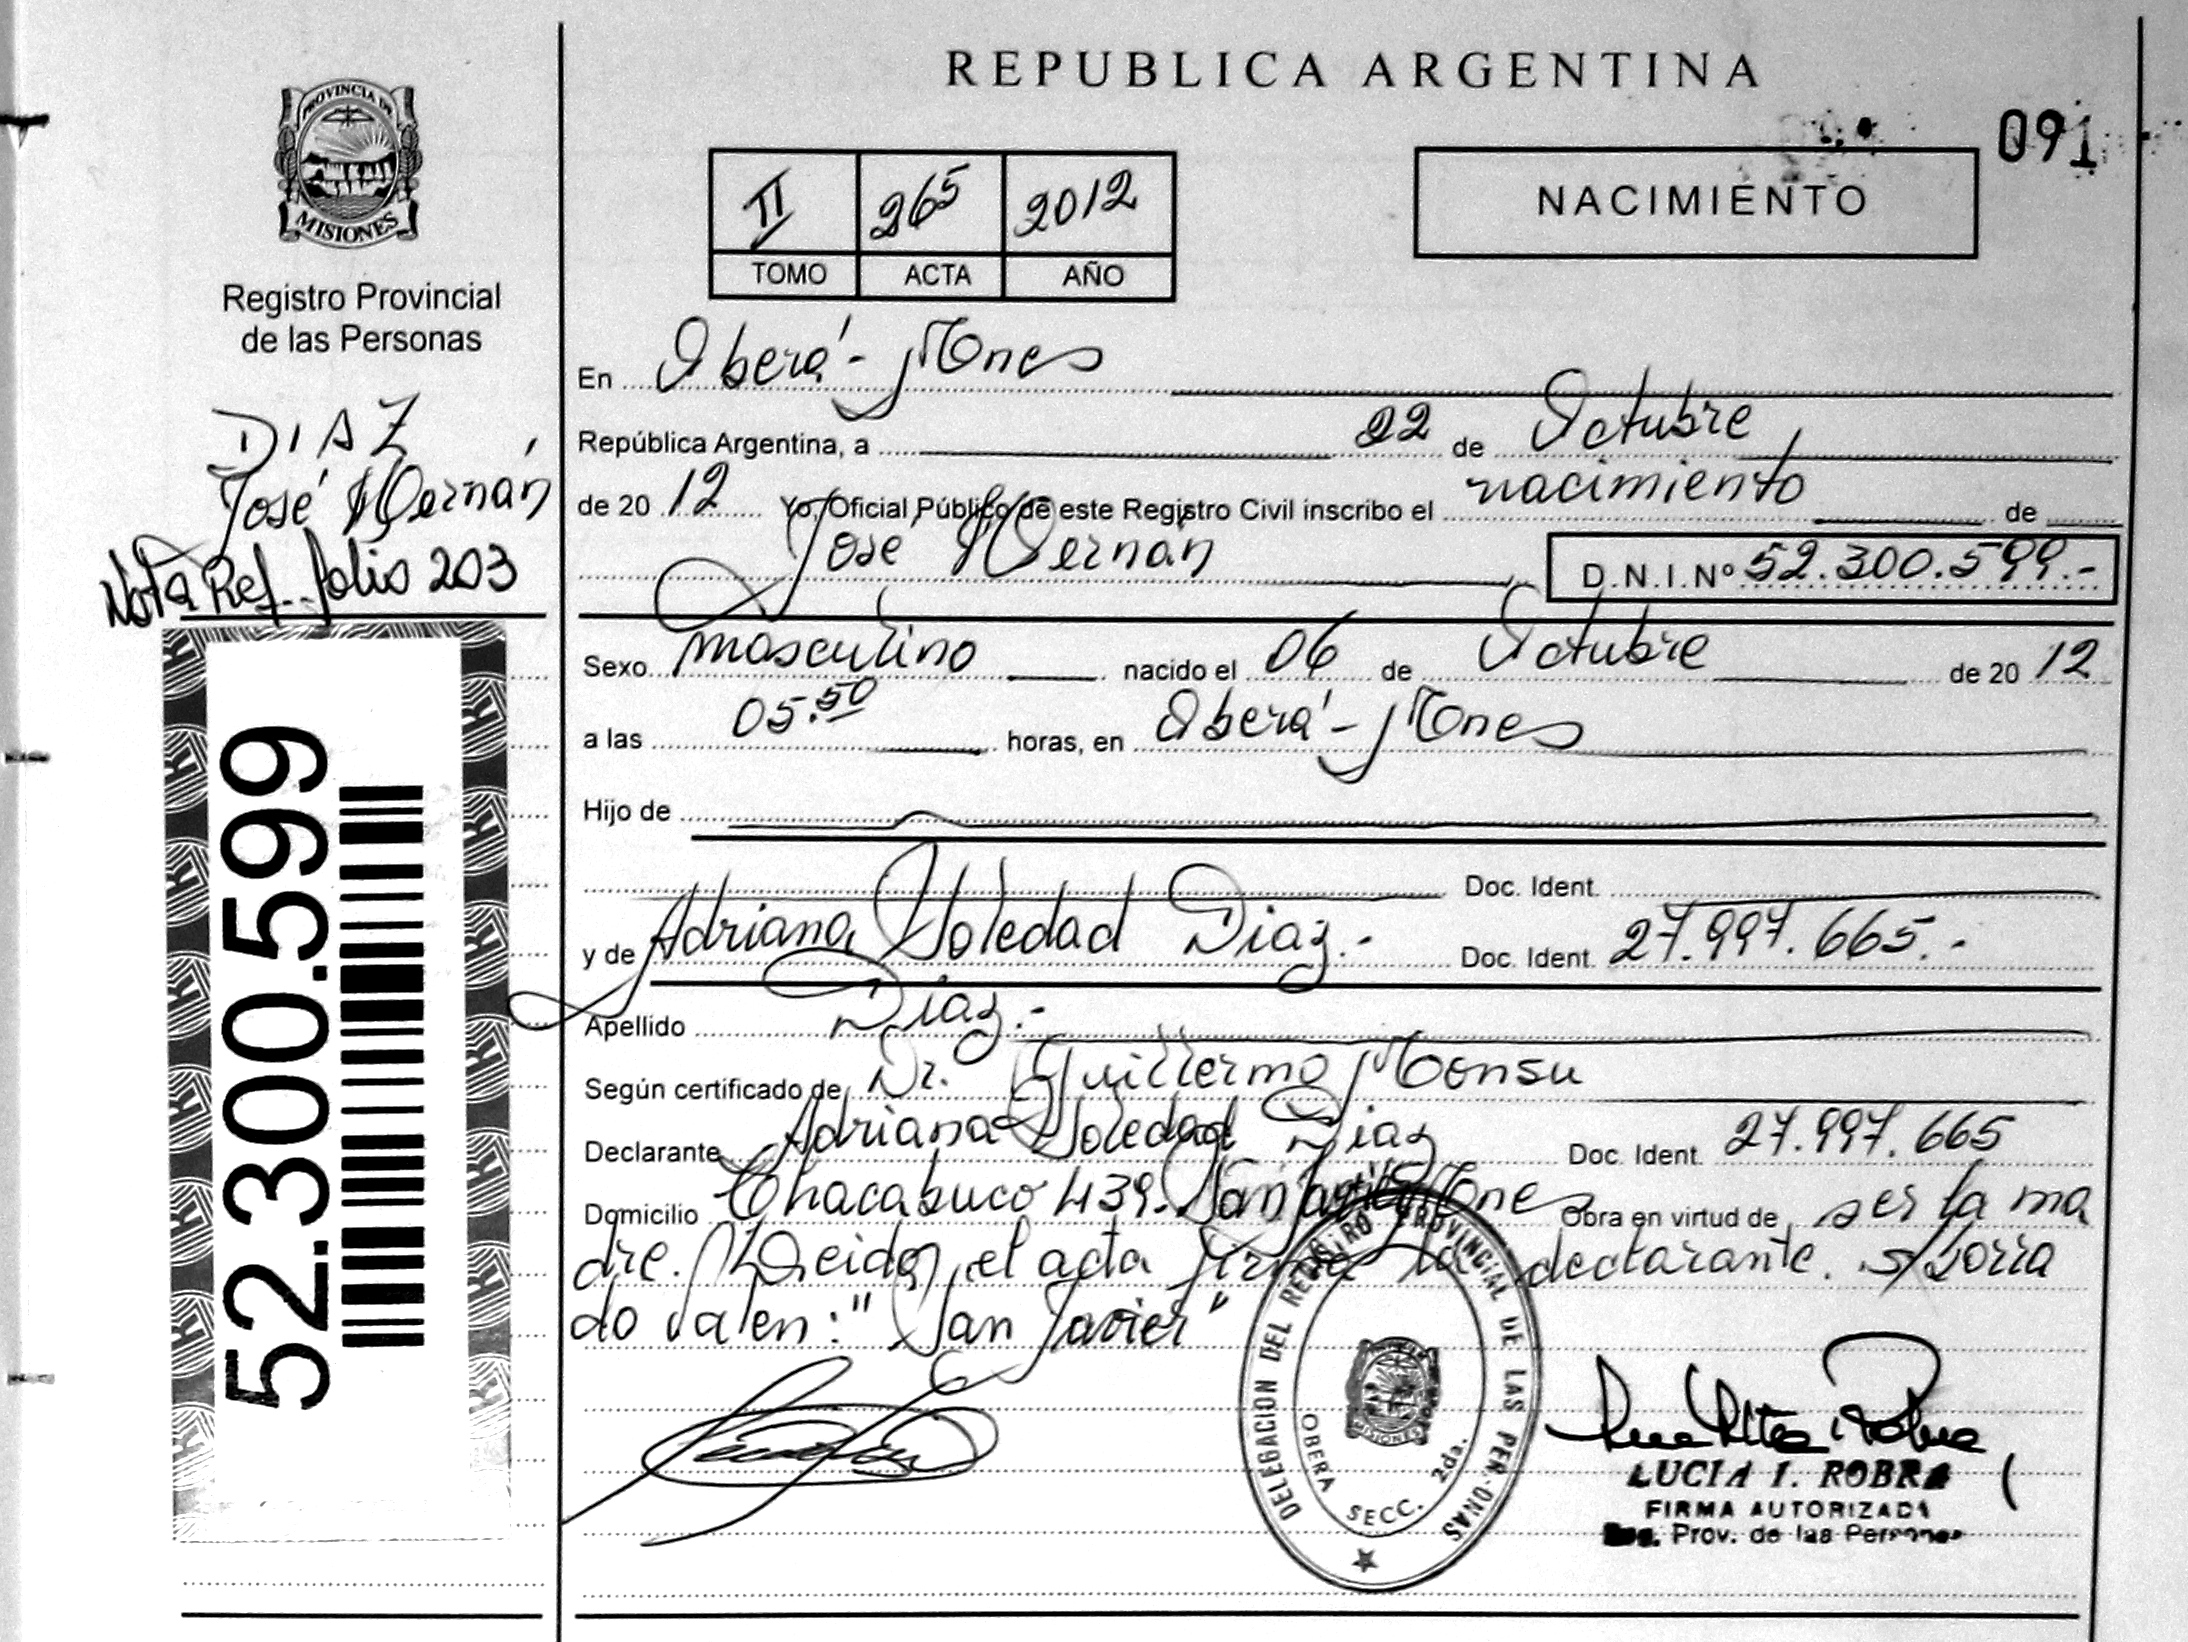 REPUBLICA ARGENTINA
091
PROVINCIA DE
MISIONES
Registro Provincial
de las Personas
II 265 2012
TOMO ACTA AÑO
NACIMIENTO
DIAZ,
José Hernán
Nota Ref. folio 203
52.300.599
En Oberá - Mnes
República Argentina, a 22 de Octubre,
de 20 12 Yo, Oficial Público de este Registro Civil inscribo el nacimiento de
José Hernán D.N.I.Nº 52.300.599.-
Sexo masculino nacido el 06 de Octubre de 20 12
a las 05.50 horas, en Oberá - Mnes
Hijo de
Doc. Ident.
y de Adriana Soledad Diaz.- Doc. Ident. 27.997.665.-
Apellido Diaz.-
Según certificado de Dr. Guillermo Monsu
Declarante Adriana Soledad Diaz Doc. Ident. 27.997.665
Domicilio Chacabuco 439- San Javier Mnes Obra en virtud de ser la ma
dre. Leida el acta firma la declarante. s/borra
do valen: "San Javier"
DELEGACION DEL REGISTRO PROVINCIAL DE LAS PERSONAS
OBERA SECC. 2da.
MISIONES
LUCIA I. ROBRA
FIRMA AUTORIZADA
Reg. Prov. de las Personas